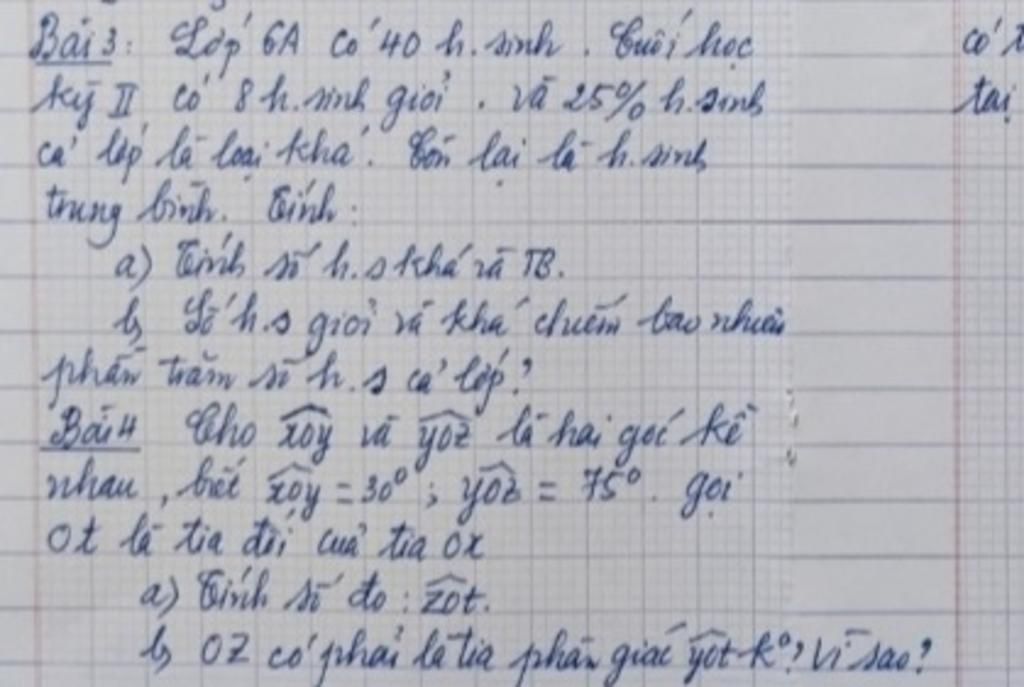 Bài 3: Lớp 6A có 40 h.sinh. Cuối học
có
kỳ II có 8 h.sinh giỏi. và 25% h.sinh
tại
cả lớp là loại khá. Còn lại là h.sinh
trung bình. Tính:
a) Tính số h.s khá và TB.
b, Số h.s giỏi và khá chiếm bao nhiêu
phần trăm số h.s cả lớp?
Bài 4 Cho xOy và yOz là hai góc kề
nhau, biết xOy = 30°; yOz = 75°. gọi
Ot là tia đối của tia Ox
a) Tính số đo: zOt.
b, OZ có phải là tia phân giác yOt k°? Vì sao?